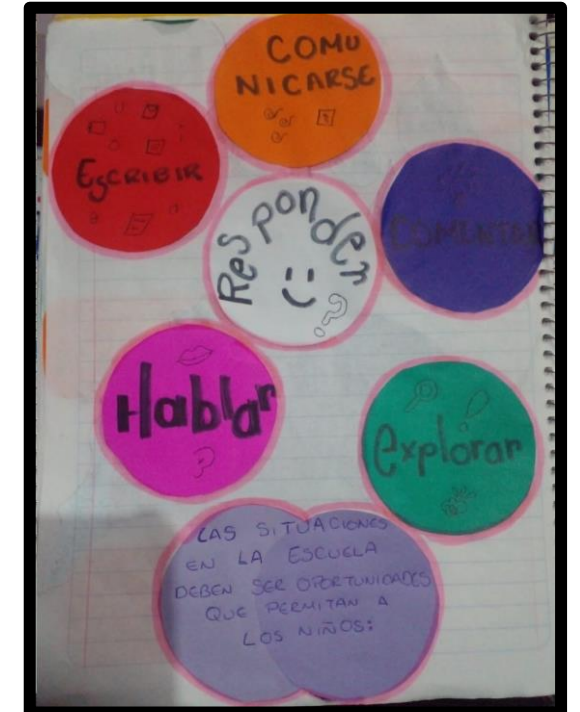 COMU
NICARSE
ESCRIBIR
Responder
COMENTAR
Hablar
explorar
LAS SITUACIONES
EN LA ESCUELA
DEBEN SER OPORTUNIDADES
QUE PERMITAN A
LOS NIÑOS: